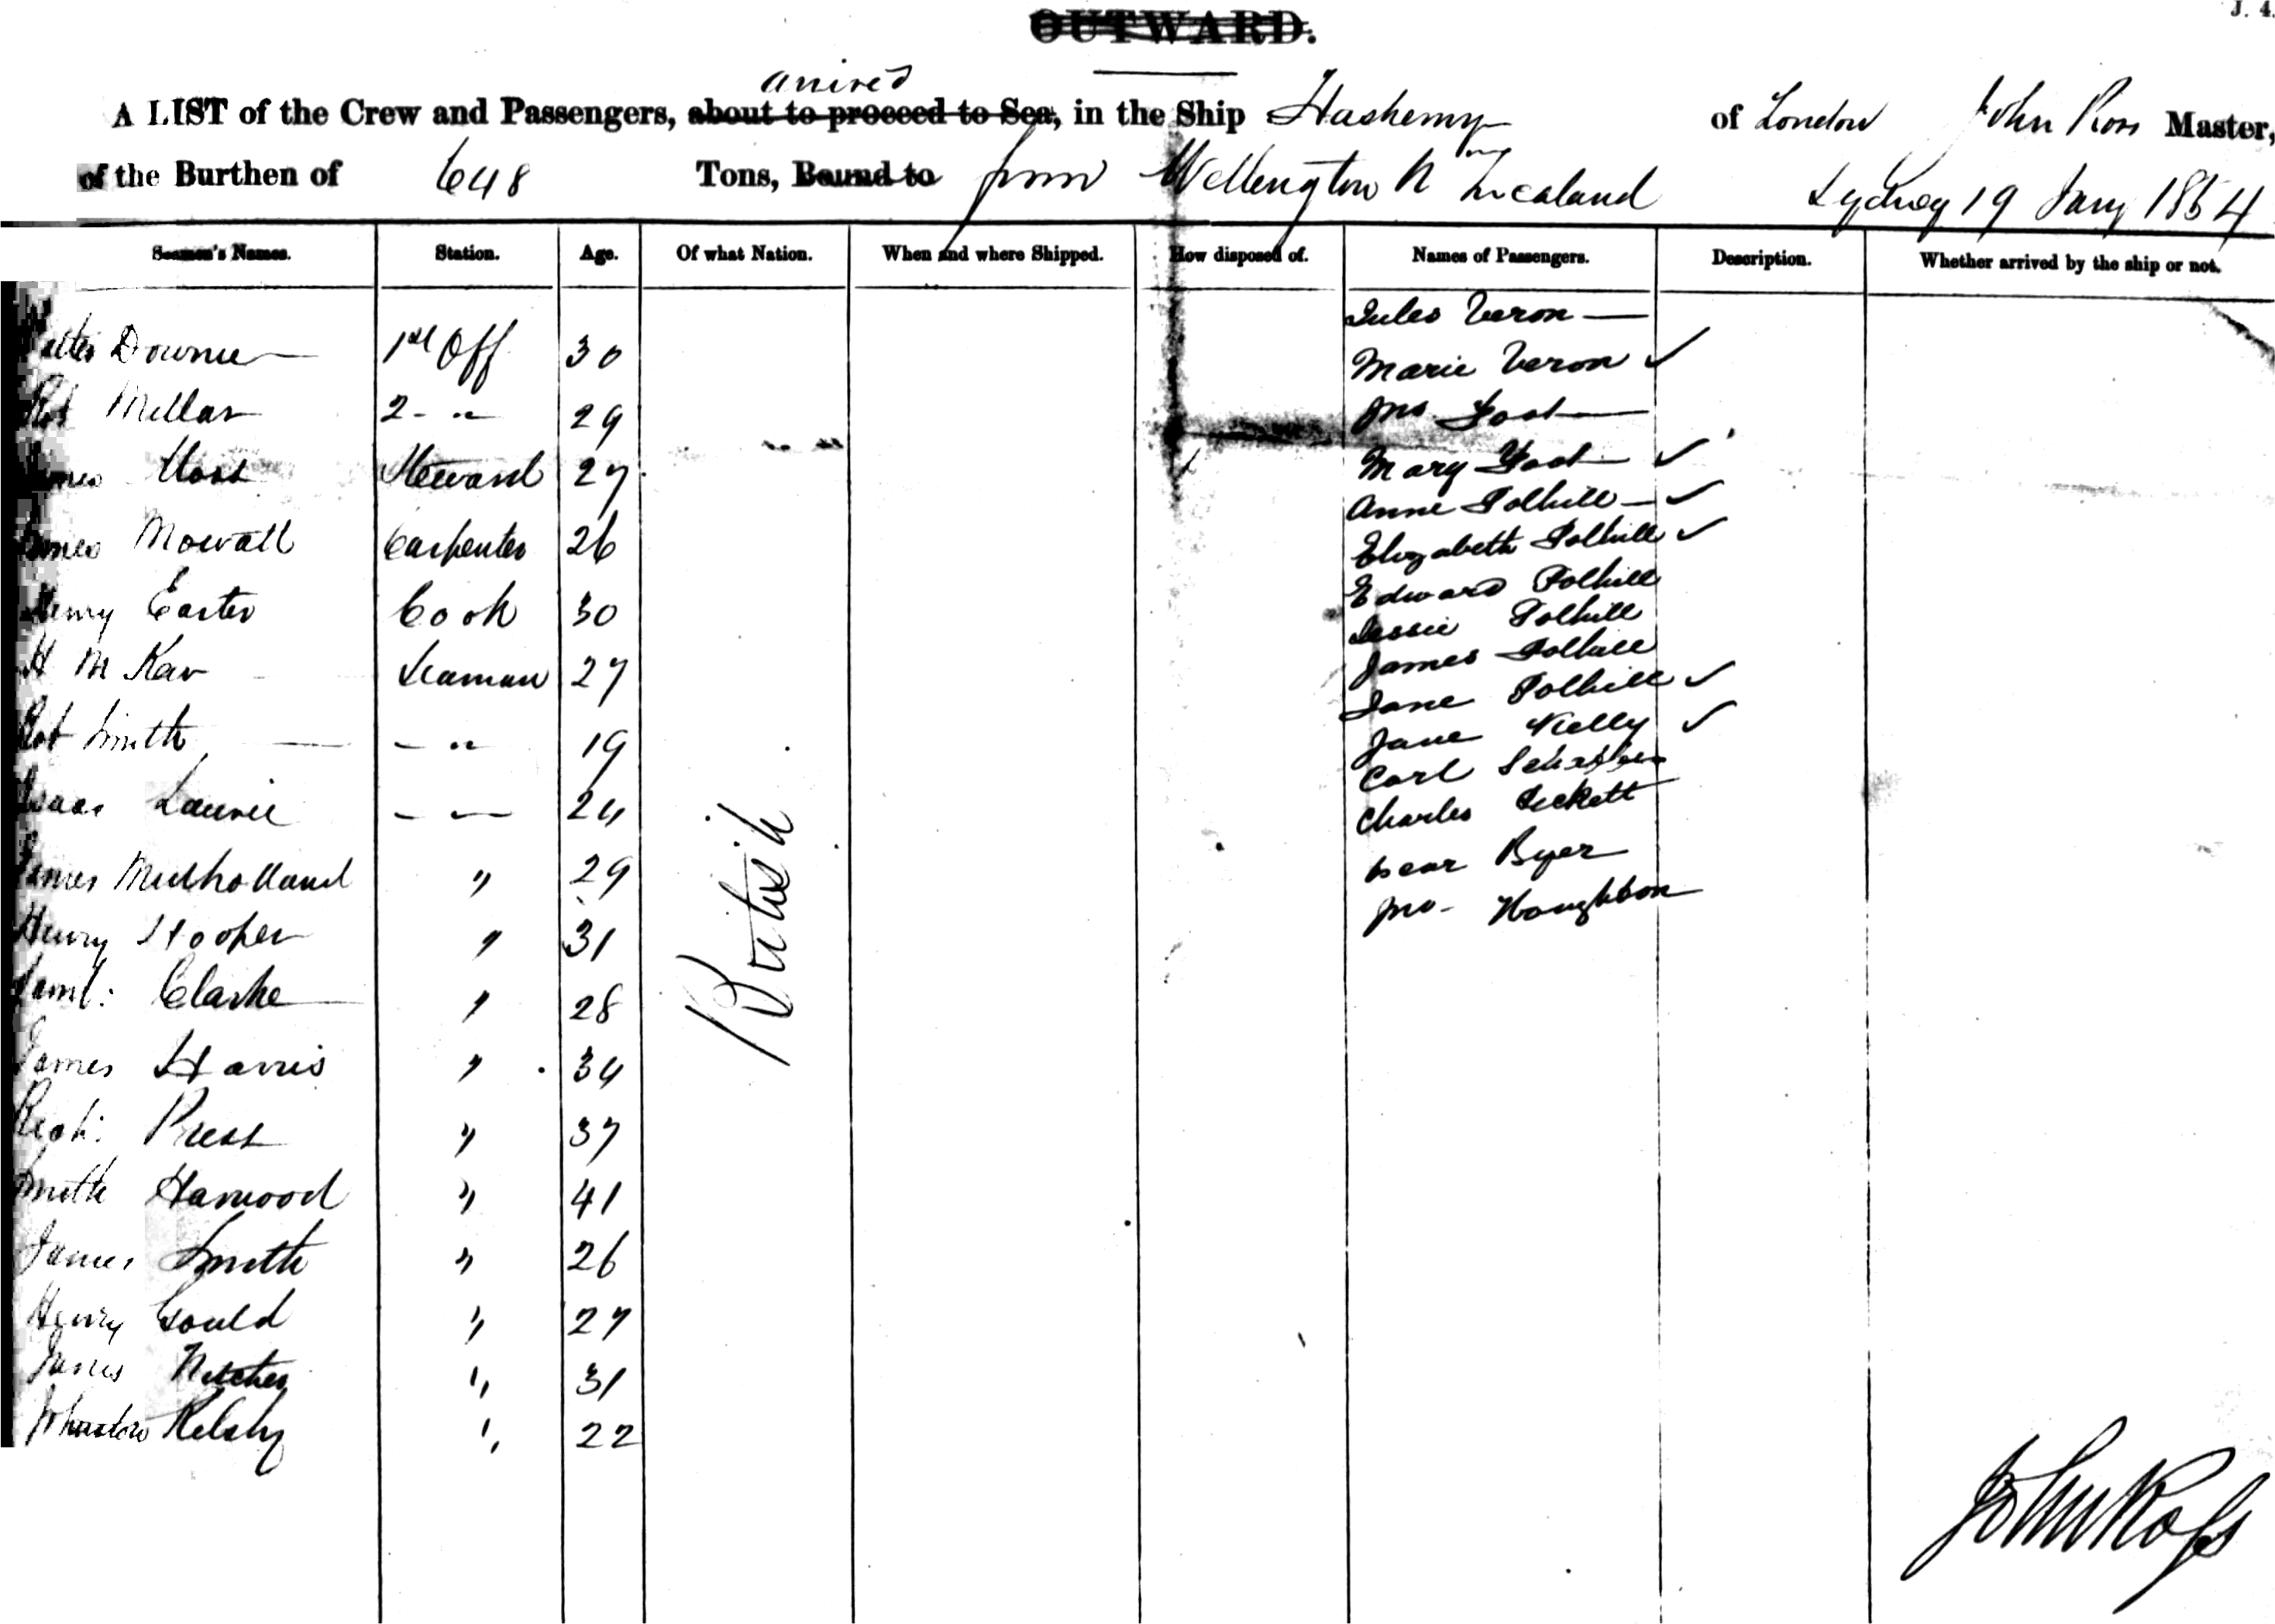 J. 4.
OUTWARD.
arrived
A LIST of the Crew and Passengers, about to proceed to Sea, in the Ship Hashemy of London John Ross Master,
of the Burthen of 648 Tons, Bound to from Wellington N Zealand Sydney 19 Jany 1854
Seamen's Names. Station. Age. Of what Nation. When and where Shipped. How disposed of. Names of Passengers. Description. Whether arrived by the ship or not.
Jules Veron
Downie 1st Off 30
Marie Veron ✓
Rob Millar 2 - " 29
Jno Foot
James Steward 27
Mary Foot ✓
Anne Polhill ✓
James Mowatt Carpenter 26
Elizabeth Polhill ✓
Edward Polhill
Henry Easter Cook 30
Jessie Polhill
James Polhill
H McKav Seaman 27
Jane Polhill ✓
Jane Kelly ✓
Rob Smith - " 19
Carl
Isaac Laurie - - 24
Charles Peckett
British
James Mulholland " 29
Byer
Jno - Houghton
Henry Hooper " 31
Saml: Clarke " 28
James Harris " 34
Press " 37
Smith Harwood " 41
James Smith " 26
Henry Gould " 27
James " 31
Johnston Kelshy " 22
John Ross